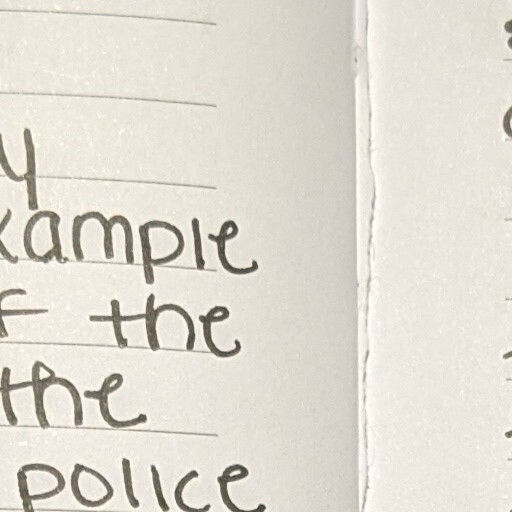 y
xample
f the
the
police